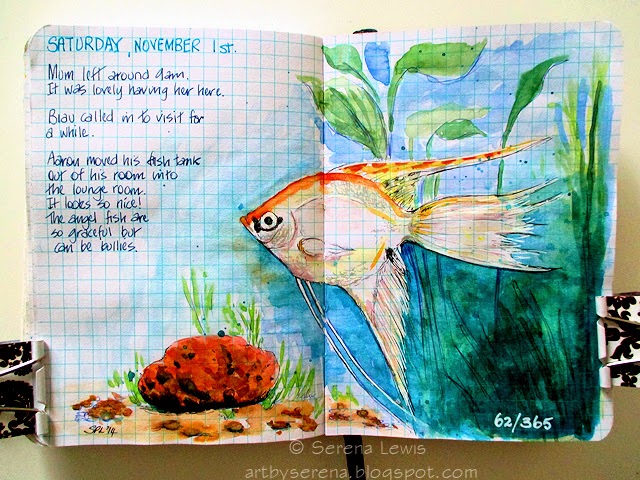 SATURDAY, NOVEMBER 1st.
Mum left around 9am.
It was lovely having her here.
Beau called in to visit for
a while.
Aaron moved his fish tank
out of his room into
the lounge room.
It looks so nice!
The angel fish are
so graceful but
can be bullies.
SRL '14
62/365
© Serena Lewis
artbyserena.blogspot.com